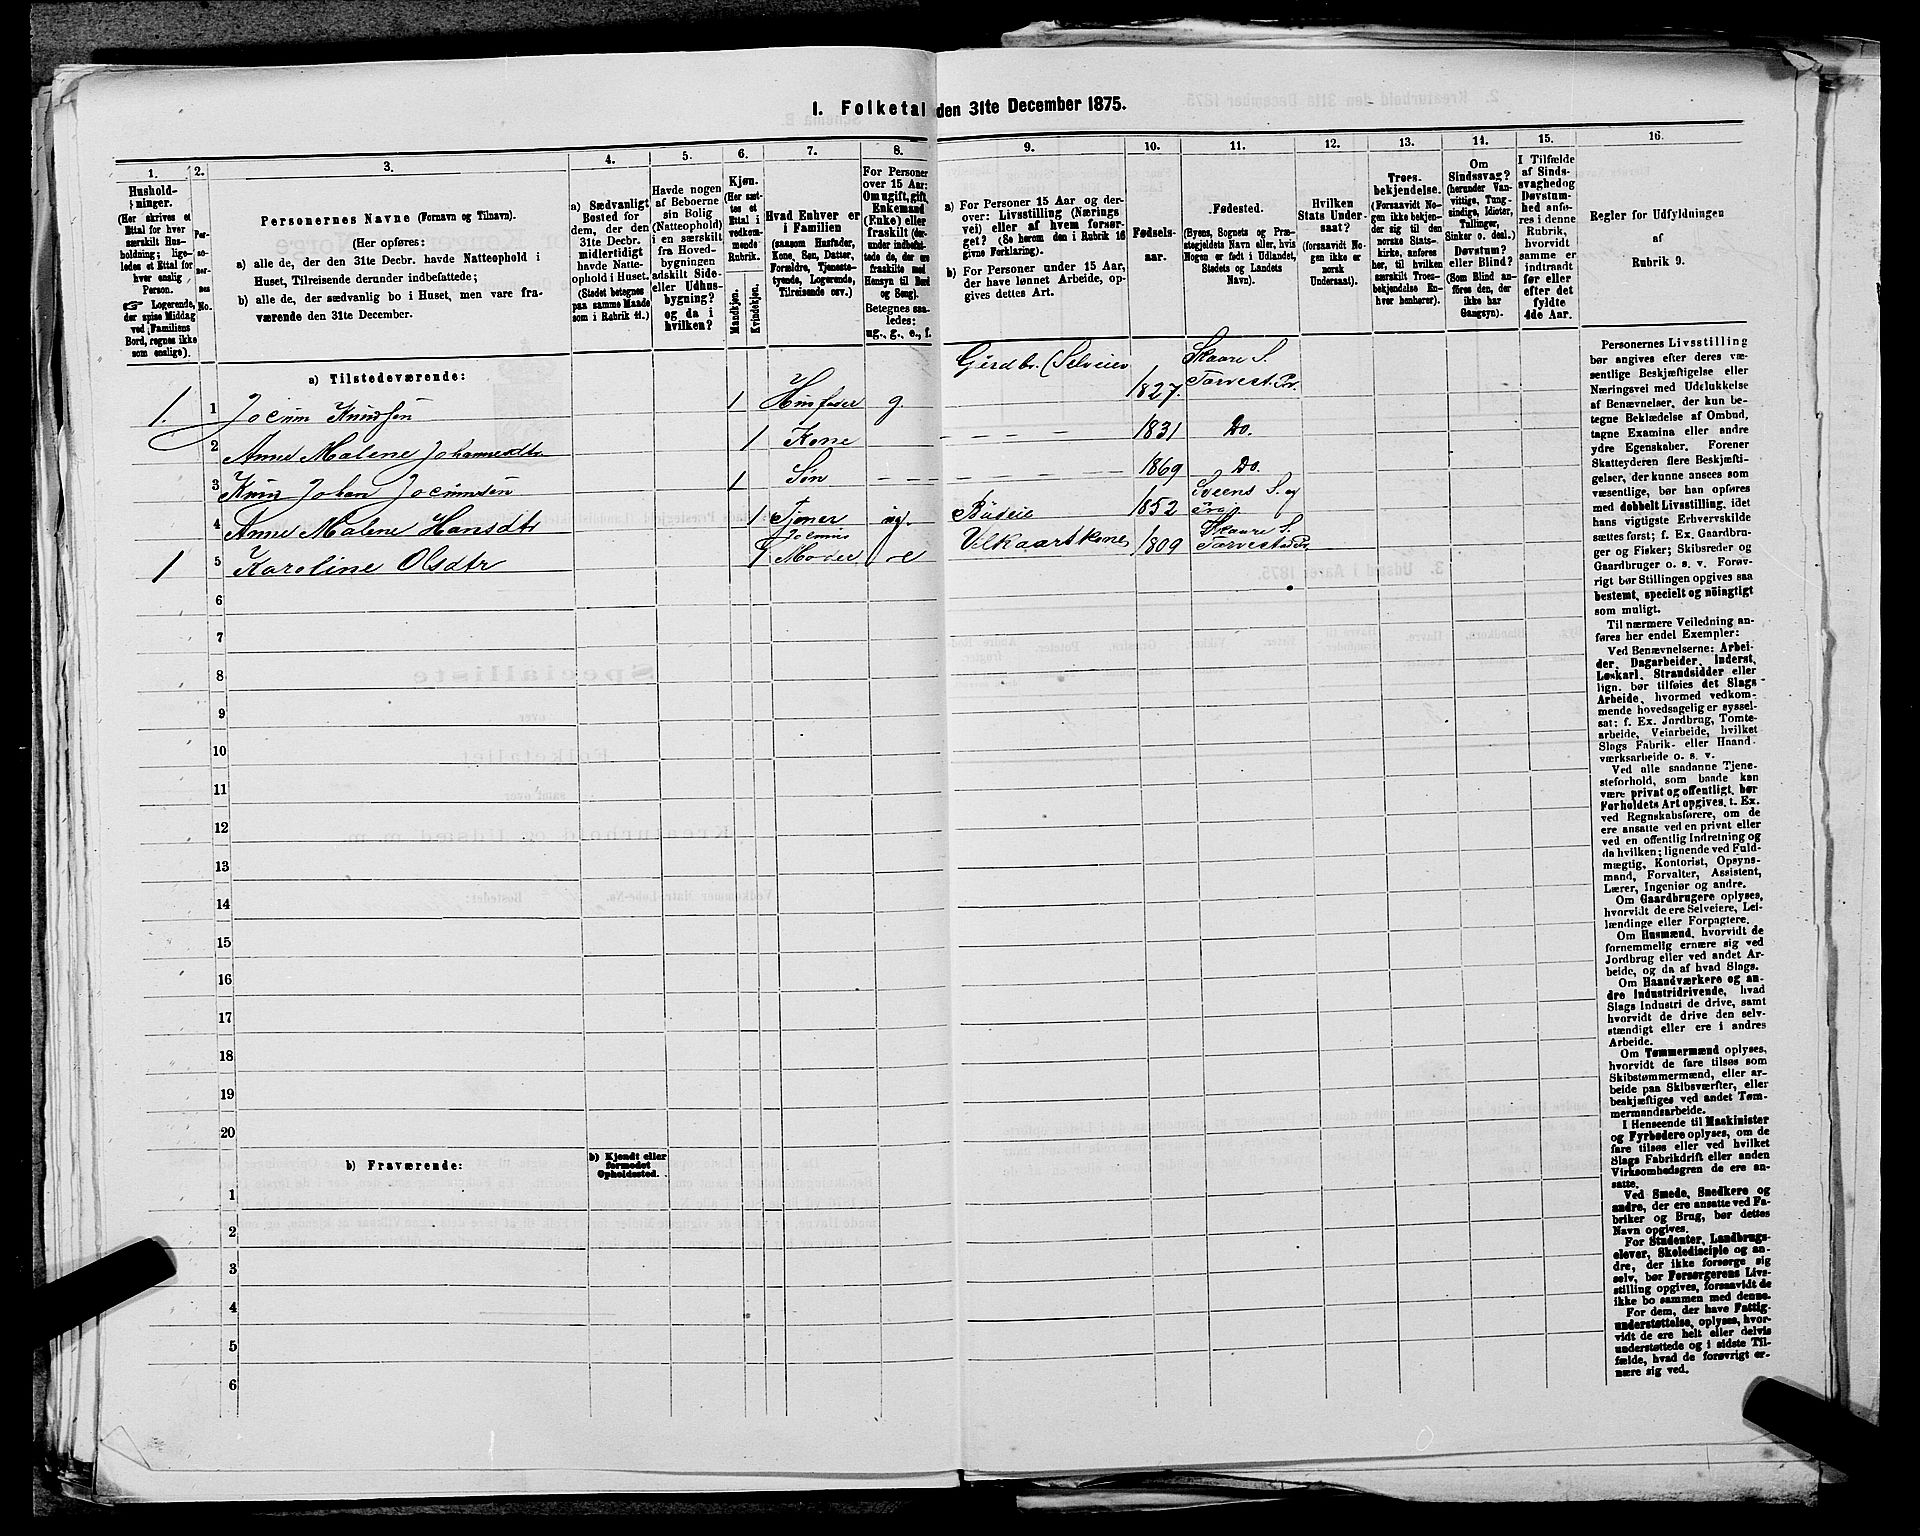 I. Folketal den 31te December 1875.
1. 2. 3. 4. 5. 6. 7. 8. 9. 10. 11. 12. 13. 14. 15. 16.
Hushold-
ninger.
(Her skrives et
Ettal for hver
særskilt Hus-
holdning; lige-
ledes et Ettal for
hver enslig
Person.
☞ Logerende,
der spise Middag
ved Familiens
Bord, regnes ikke
som enslige).
Per-
so-
ner-
nes
No.
Personernes Navne (Fornavn og Tilnavn).
(Her opføres:
a) alle de, der den 31te Decbr. havde Natteophold i
Huset, Tilreisende derunder indbefattede;
b) alle de, der sædvanlig bo i Huset, men vare fra-
værende den 31te December.
a) Sædvanligt
Bosted for
dem, der den
31te Decbr.
midlertidigt
havde Natte-
ophold i Huset.
(Stedet betegnes
paa samme Maade
som i Rubrik 11.)
Havde nogen
af Beboerne
sin Bolig
(Natteophold)
i en særskilt
fra Hoved-
bygningen
adskilt Side-
eller Udhus-
bygning?
og da i
hvilken?
Kjøn.
(Her sæt-
tes et
Ettal i
vedkom-
mende
Rubrik.
Mandkjøn.
Kvindekjøn.
Hvad Enhver er
i Familien
(saasom Husfader,
Kone, Søn, Datter,
Forældre, Tjeneste-
tyende, Logerende,
Tilreisende osv.)
For Personer
over 15 Aar:
Om ugift, gift,
Enkemand
(Enke) eller
fraskilt (der-
under indbefat-
tede de, der ere
fraskilte med
Hensyn til Bord
og Seng).
Betegnes saa-
ledes:
ug., g., e., f.
a) For Personer 15 Aar og der-
over: Livsstilling (Nærings
vei) eller af hvem forsør-
get? (Se herom den i Rubrik 16
givne Forklaring).
b) For Personer under 15 Aar,
der have lønnet Arbeide, op-
gives dettes Art.
Fødsels-
aar.
Fødested.
(Byens, Sognets og Præ-
stegjeldets Navn eller, hvis
Nogen er født i Udlandet,
Stedets og Landets
Navn).
Hvilken
Stats Under-
saat?
(forsaavidt No-
gen ikke er
norsk
Undersaat).
Troes-
bekjendelse.
(Forsaavidt No-
gen ikke bekjen-
der sig til den
norske Stats-
kirke, anføres
her, til hvilken
særskilt Troes-
bekjendelse En-
hver henhører).
Om
Sindssvag?
(herunder Van-
vittige, Tung-
sindige, Idioter,
Tullinger,
Sinker o. desl.)
Døvstum?
eller Blind?
(Som Blind an-
føres den, der
ikke har
Gangsyn).
I Tilfælde
af Sinds-
svaghed og
Døvstum-
hed anfø-
res i denne
Rubrik,
hvorvidt
samme er
indtraadt
før eller
efter det
fyldte
4de Aar.
Regler for Udfyldningen
af
Rubrik 9.
a) Tilstedeværende:
1. 1 Jocum Knudsen 1 Husfader g. Gårdbr. (Selveier 1827. Skaare S. Torvest. Pr.
2 Anne Malene Johannesdtr 1 Kone – – – – 1831 Do.
3 Knud Johan Jocumsen 1 Søn – – – – 1869 Do.
4 Anne Malene Hansdtr 1 Tjener ug. Budeie 1852 Sveens S. og
1 5 Karoline Olsdtr 1 Jocums Moder e Velkaarskone 1809 Skaare S. Torvestad Pr.
6
7
8
9
10
11
12
13
14
15
16
17
18
19
20
b) Fraværende:
b) Kjendt eller
formodet
Opholdssted.
1
2
3
4
5
6
Personernes Livsstilling
bør angives efter deres væ-
sentlige Beskjæftigelse eller
Næringsvei med Udelukkelse
af Benævnelser, der kun be-
tegne Beklædelse af Ombud,
tagne Examina eller andre
ydre Egenskaber. Forener
Skatteyderen flere Beskjæfti-
gelser, der kunne ansees som
væsentlige, bør han opføres
med dobbelt Livsstilling, idet
hans vigtigste Erhvervskilde
sættes først; f. Ex. Gaardbru-
ger og Fisker; Skibsreder og
Gaardbruger o. s. v. Forøv-
rigt bør Stillingen opgives saa
bestemt, specielt og nøiagtigt
som muligt.
Til nærmere Veiledning an-
føres her endel Exempler:
Ved Benævnelserne: Arbei-
der, Dagarbeider, Inderst,
Løskarl, Strandsidder eller
lign. bør tilføies det Slags
Arbeide, hvormed vedkom-
mende hovedsagelig er syssel-
sat; f. Ex. Jordbrug, Tomte-
arbeide, Veiarbeide, hvilket
Slags Fabrik- eller Haand-
værksarbeide o. s. v.
Ved alle saadanne Tjene-
steforhold, som baade kan
være privat og offentligt, bør
Forholdets Art opgives, t. Ex.
ved Regnskabsførere, om de
ere ansatte ved en privat eller
ved en offentlig Indretning og
da hvilken; lignende ved Fuld-
mægtig, Kontorist, Opsyns-
mand, Forvalter, Assistent,
Lærer, Ingeniør og andre.
Om Gaardbrugere oplyses,
hvorvidt de ere Selveiere, Lei-
lændinge eller Forpagtere.
Om Husmænd, hvorvidt de
fornemmelig ernære sig ved
Jordbrug eller ved andet Ar-
beide, og da af hvad Slags.
Om Haandværkere og an-
dre Industridrivende, hvad
Slags Industri de drive, samt
hvorvidt de drive den selv-
stændigt eller ere i andres
Arbeide.
Om Tømmermænd oplyses,
hvorvidt de fare tilsøs som
Skibstømmermænd, eller ar-
beide paa Skibsværfter, eller
beskjæftiges ved andet Tøm-
mermandsarbeide.
I Henseende til Maskinister
og Fyrbødere oplyses, om de
fare tilsøs eller ved hvilket
Slags Fabrikdrift eller anden
Virksomhedsgren de ere an-
satte.
Ved Smede, Snedkere og
andre, der ere ansatte ved Fa-
briker og Brug, bør dettes
Navn opgives.
For Studenter, Landbrugs-
elever, Skoledisciple og an-
dre, der ikke forsørge sig
selv, bør Forsørgerens Livs-
stilling opgives, forsaavidt de
ikke bo sammen med denne.
For dem, der have Fattig-
understøttelse, oplyses, hvor-
vidt de ere helt eller delvis
understøttede og i sidste Til-
fælde, hvad de forøvrigt er-
nære sig ved.